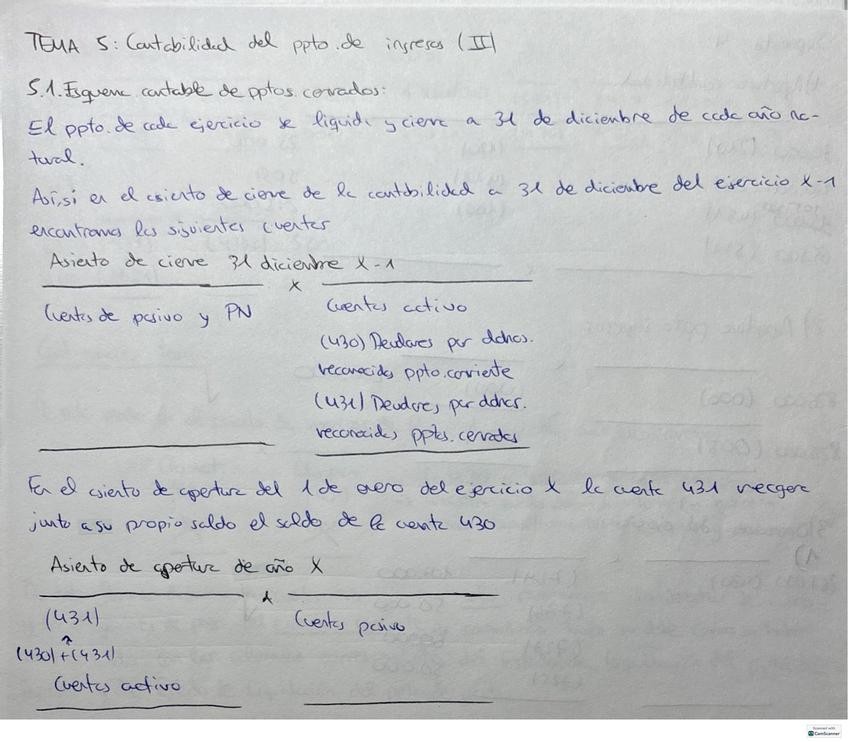 TEMA 5: Contabilidad del ppto. de ingresos (II)
5.1. Esquema contable de pptos. cerrados:
El ppto. de cada ejercicio se liquida y cierra a 31 de diciembre de cada año na-
tural.
Así, si en el asiento de cierre de la contabilidad a 31 de diciembre del ejercicio X-1
encontramos las siguientes cuentas
Asiento de cierre 31 diciembre X-1
x
Cuentas de pasivo y PN
Cuentas activo
(430) Deudores por ddhos.
reconocidos ppto. corriente
(431) Deudores por ddhos.
reconocidos pptos. cerrados
En el asiento de apertura del 1 de enero del ejercicio X la cuenta 431 recogera
junto a su propio saldo el saldo de la cuenta 430
Asiento de apertura de año X
x
(431)
Cuentas pasivo
(430)+(431)
Cuentas activo
Scanned with
CamScanner